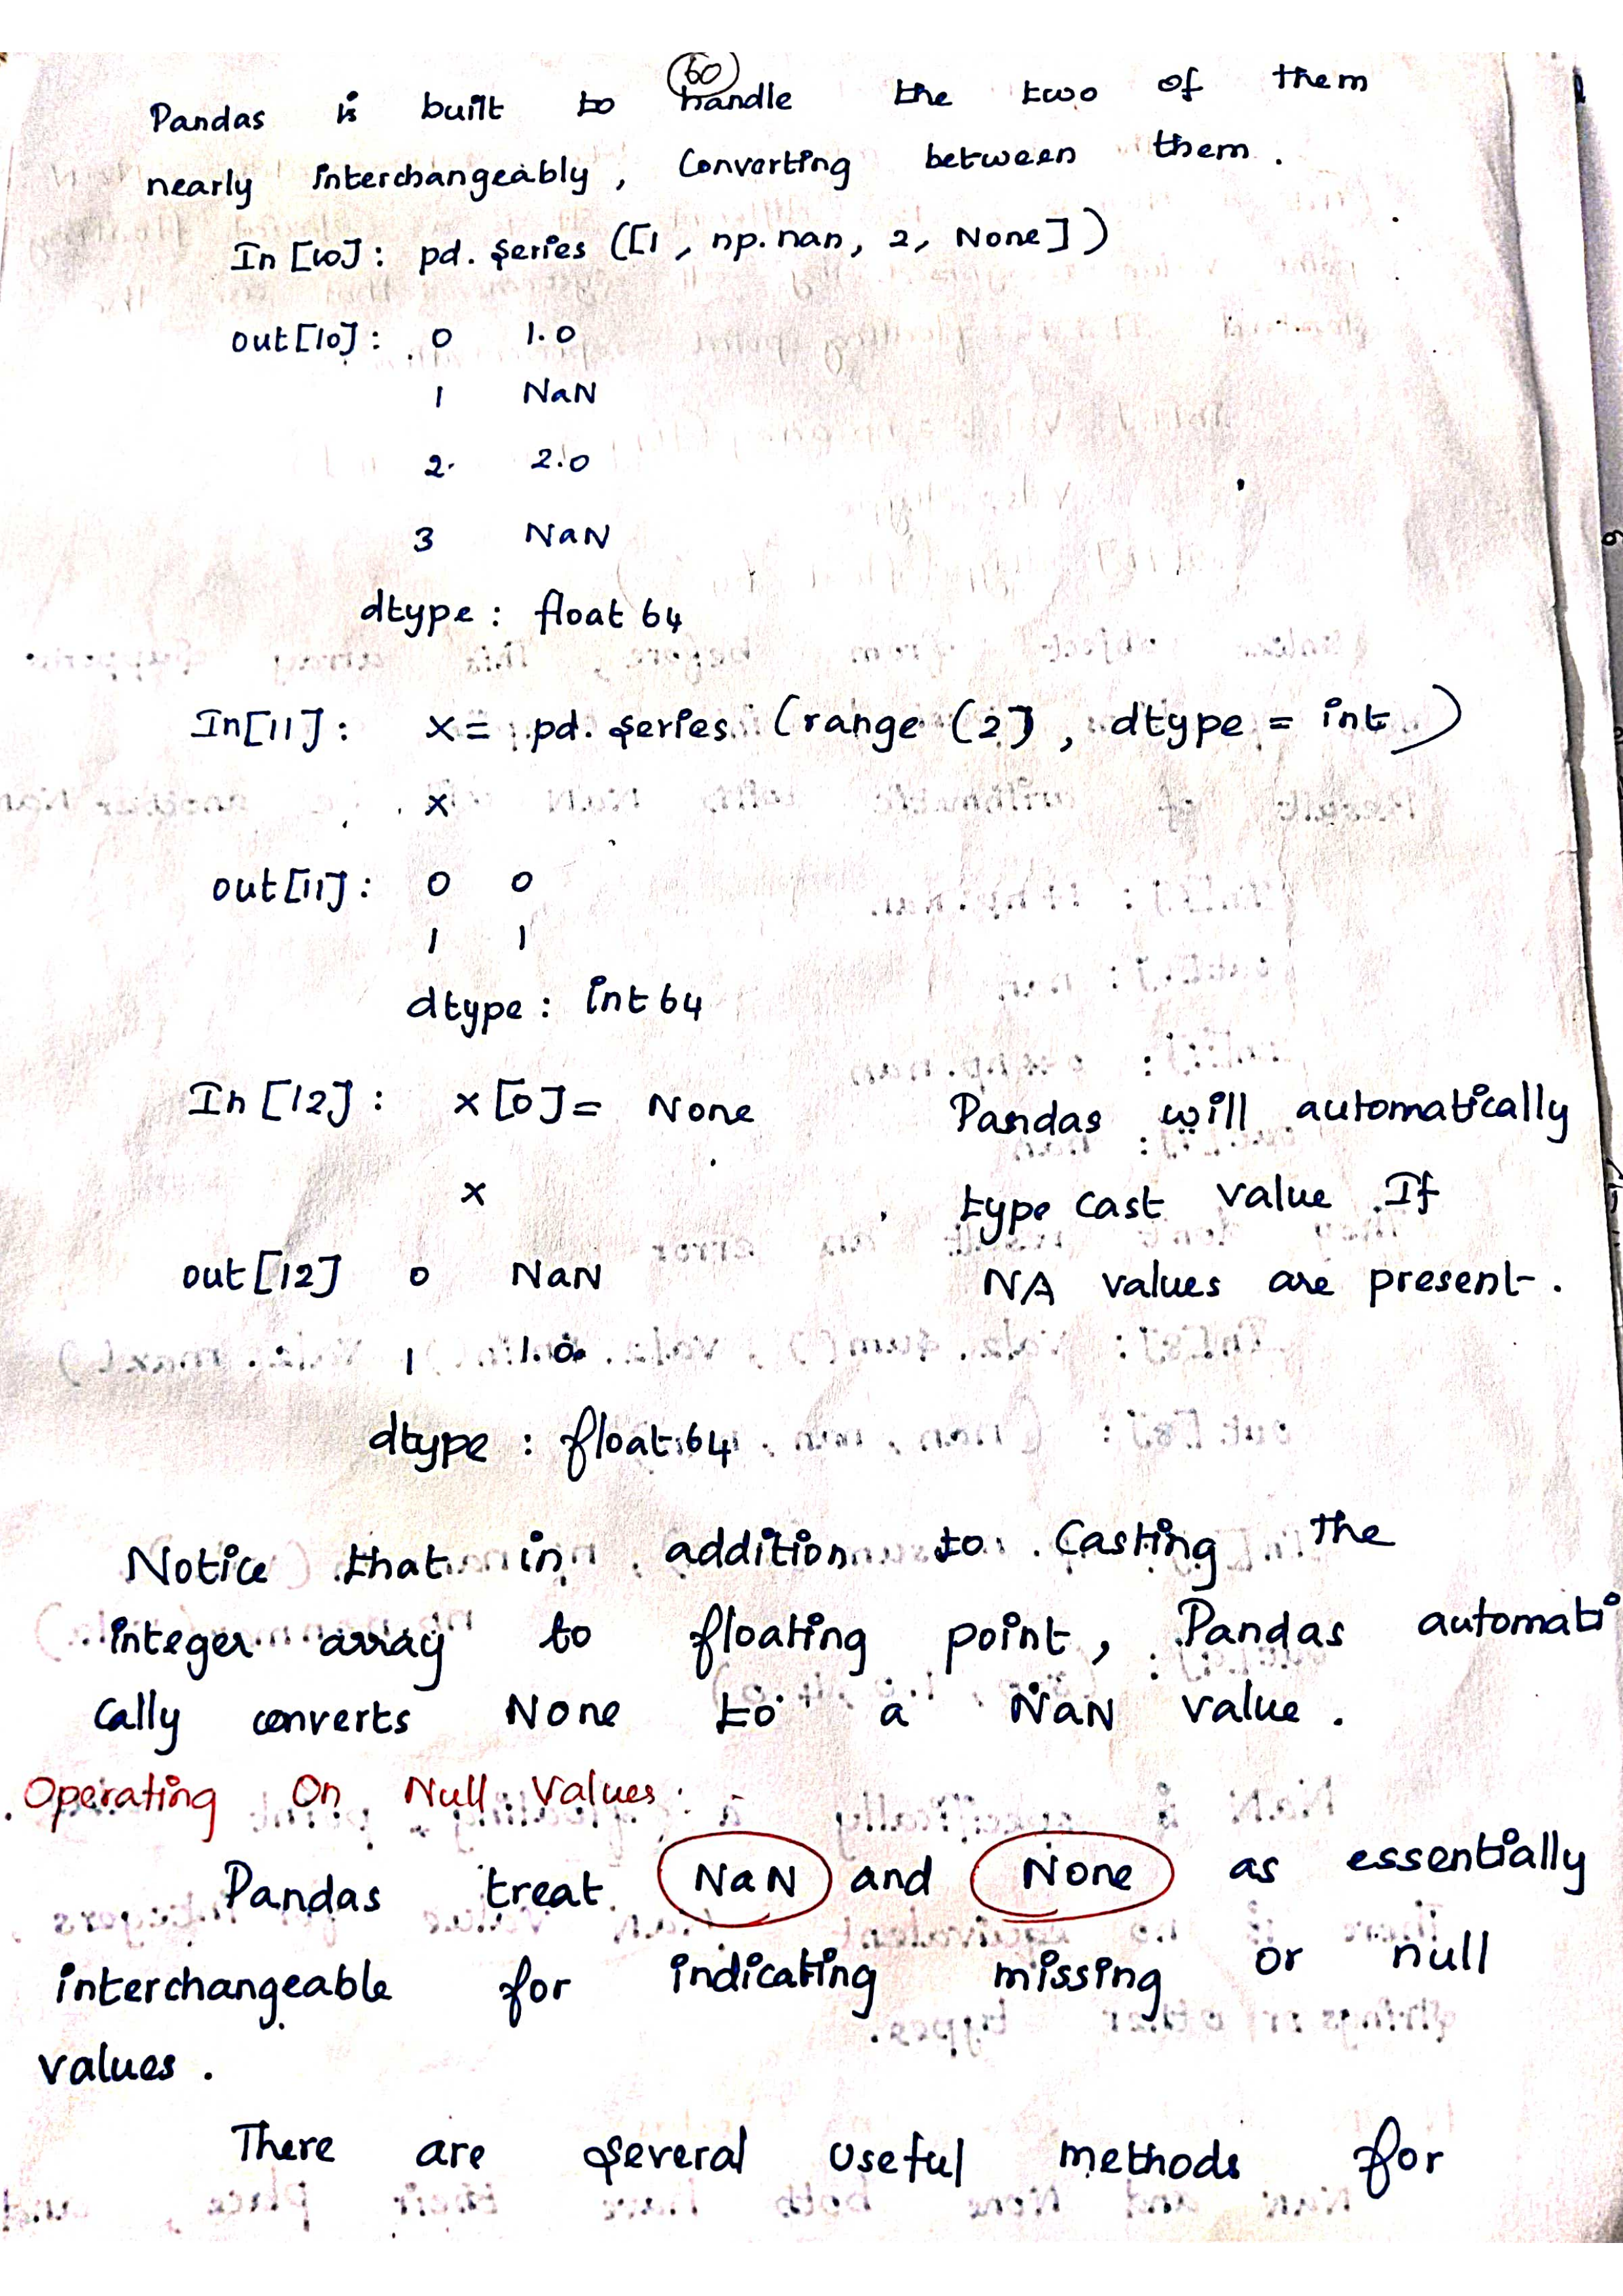 60
Pandas is built to handle the two of them
nearly interchangeably, Converting between them.
In [10]: pd. Series ([1, np.nan, 2, None])
out[10]: 0 1.0
1 NaN
2. 2.0
3 NaN
dtype: float 64
In[11]: x= pd. Series (range (2], dtype = int)
x
out[11]: 0 0
1 1
dtype: int 64
In [12]: x [0]= None Pandas will automatically
x type cast value If
out[12] 0 NaN NA values are present.
1 1.0
dtype: float 64
Notice that in addition to Casting the
integer array to floating point, Pandas automati
cally converts None to a NaN value.
Operating On Null Values:
Pandas treat NaN and None as essentially
interchangeable for indicating missing or null
values.
There are Several useful methods for